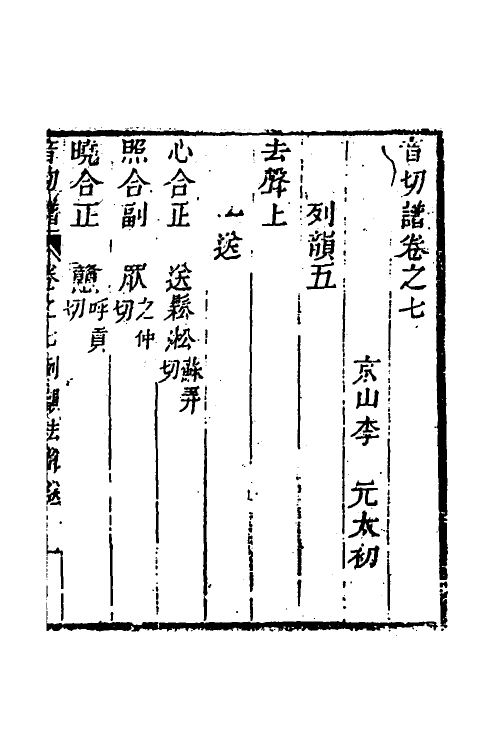 音切譜卷之七
京山李 元太初
列韻五
去聲上
一送
心合正 送鬆淞蘇弄切
照合副 眾之仲切
曉合正 戇呼貢切
音切譜 卷之七列韻去聲送